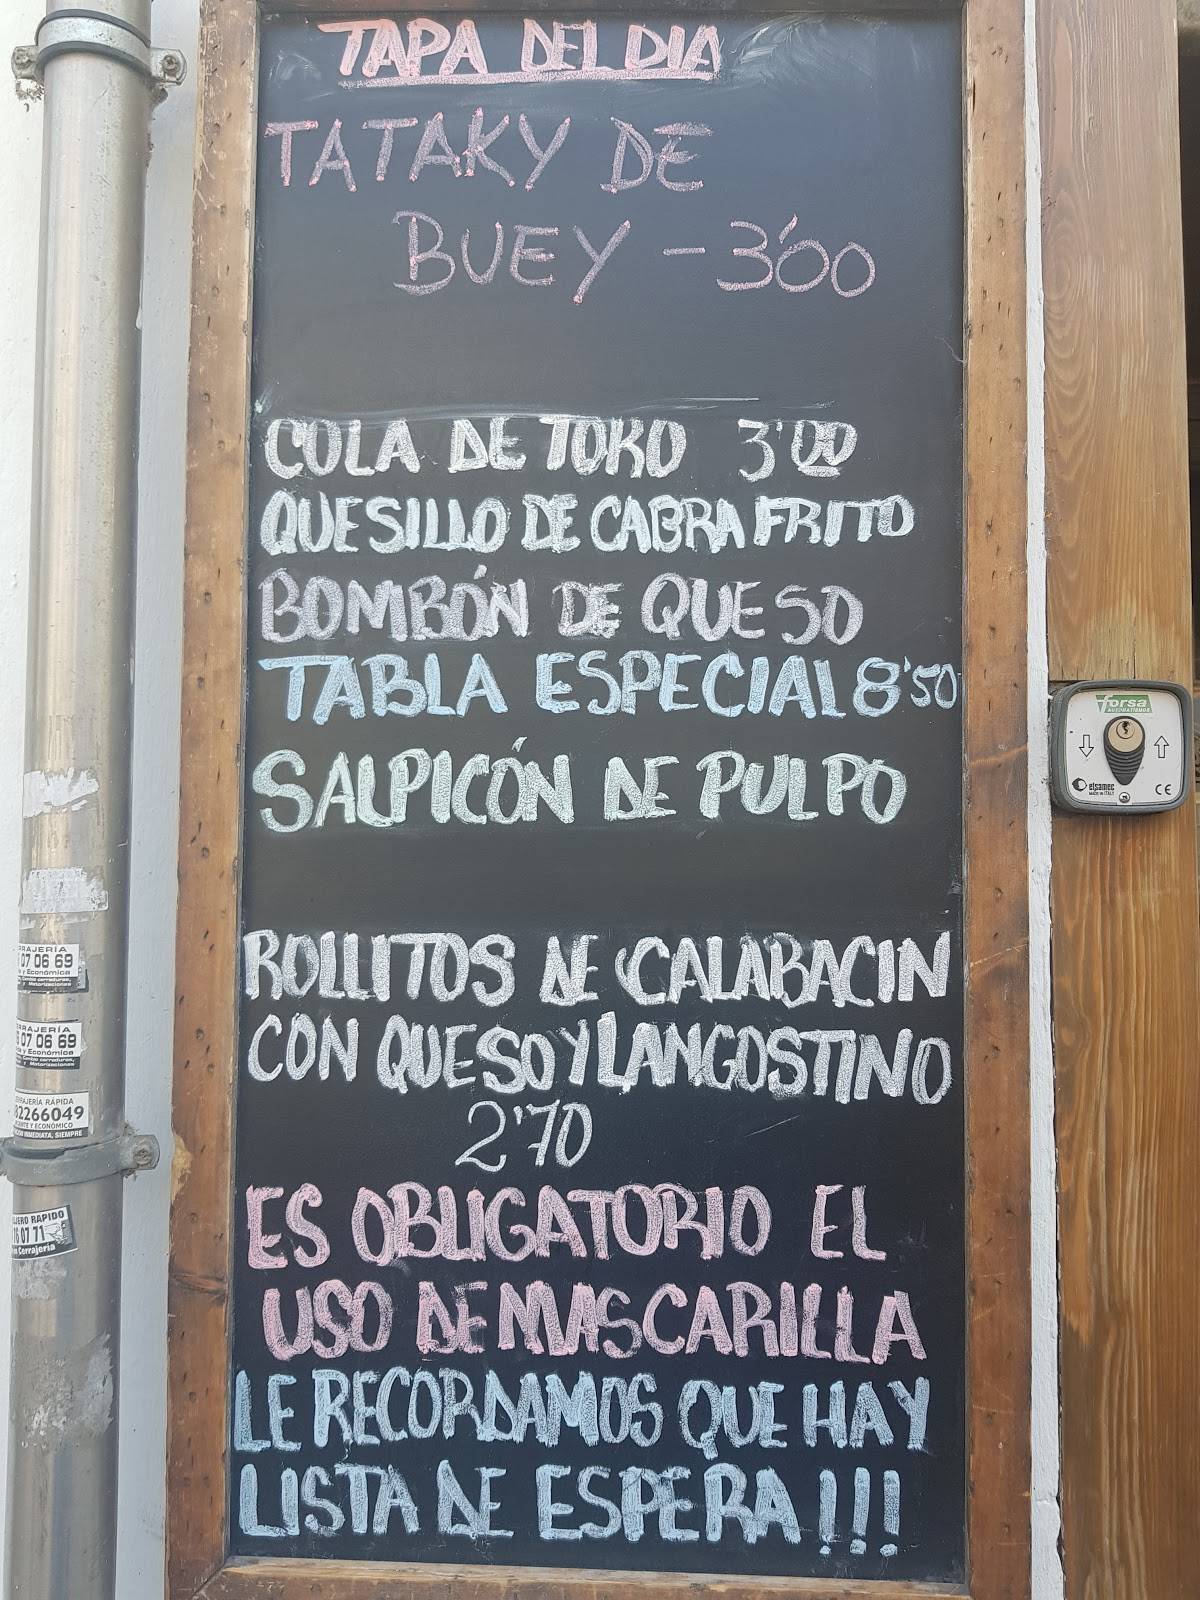 TAPA DEL DIA
TATAKY DE
BUEY - 3'00
COLA DE TORO 3'00
QUESILLO DE CABRA FRITO
BOMBÓN DE QUESO
TABLA ESPECIAL 8'50
SALPICÓN DE PULPO
ROLLITOS DE CALABACIN
CON QUESO Y LANGOSTINO
2'70
ES OBLIGATORIO EL
USO DE MASCARILLA
LE RECORDAMOS QUE HAY
LISTA DE ESPERA!!!
forsa
AUTOMATISMOS
elsamec
MADE IN ITALY
CE
RRAJERÍA
07 06 69
a y Económica
RRAJERÍA
07 06 69
a y Económica
RRAJERÍA RÁPIDA
82266049
SIEMPRE
JERO RAPIDO
6 07 71
Cerrajería